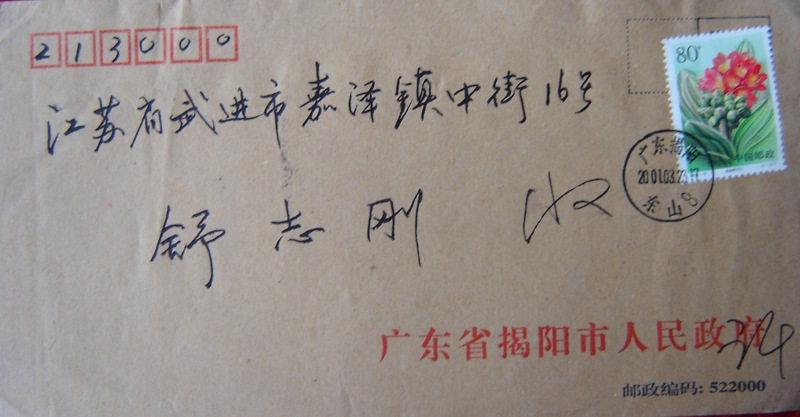 213000
80分
中国邮政
江苏省武进市嘉泽镇中街16号
广东揭阳
2001.03.23.17
东山8
舒志刚 收
广东省揭阳市人民政府
邮政编码: 522000